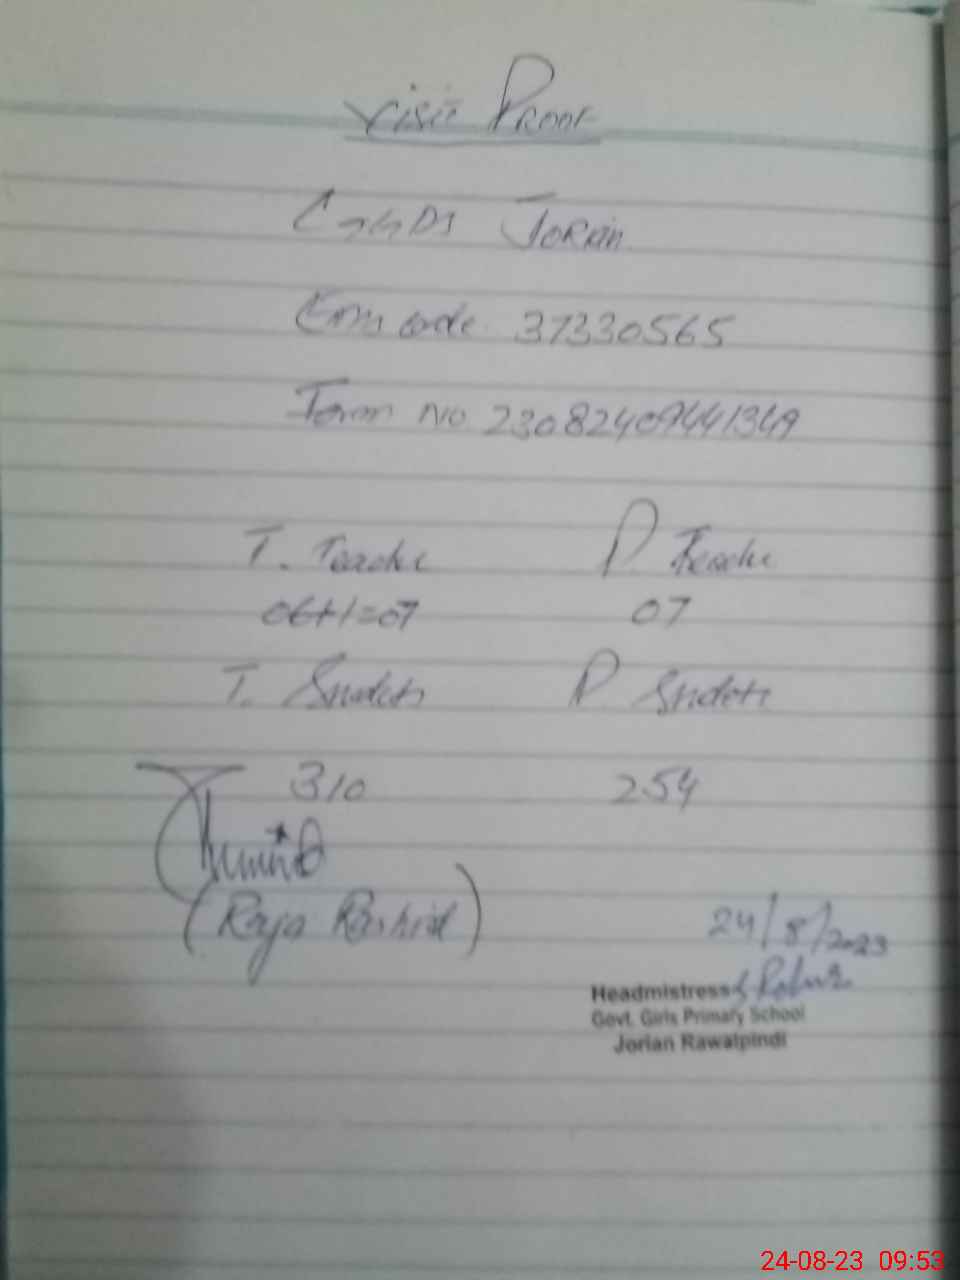 Visit Proof
GGPS Jorian
Emis code 37330565
Form No 23082409441349
T. Teache P. Teache
06+1=07 07
T. Students P. Students
310 254
(Raja Rashid)
24/8/2023
Headmistress
Govt. Girls Primary School
Jorian Rawalpindi
24-08-23 09:53